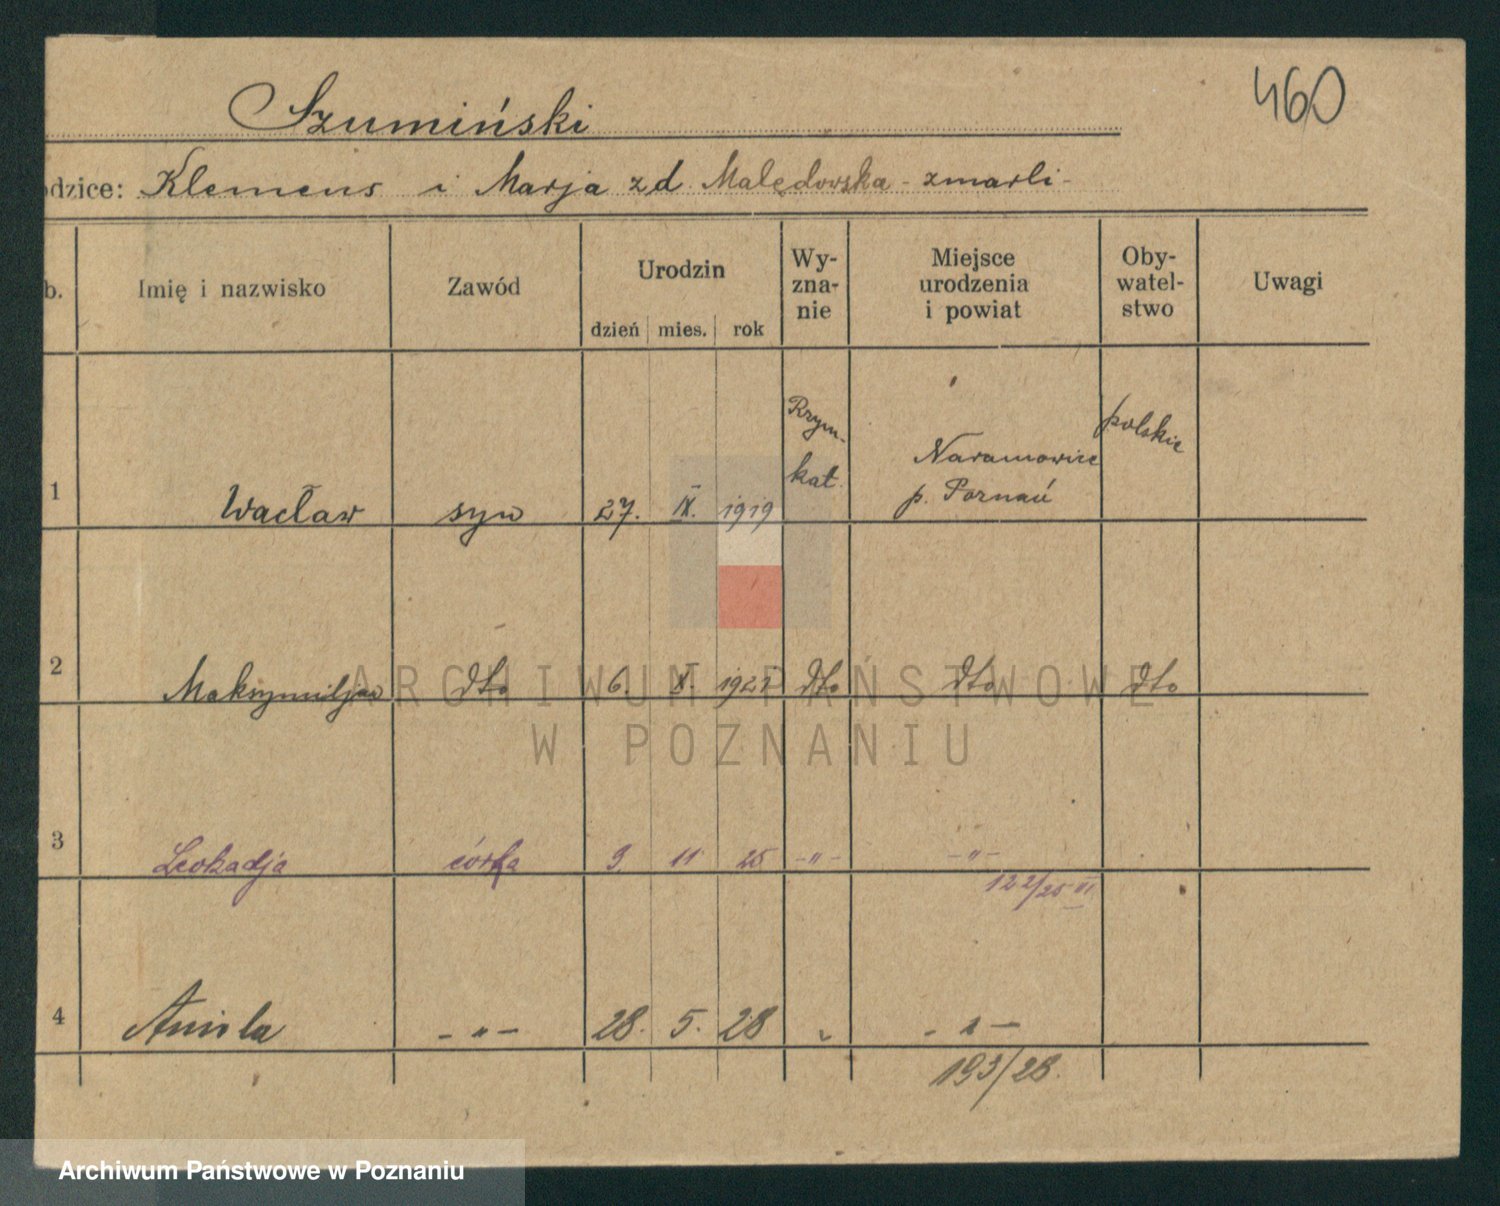 460
Szumiński
odzice: Klemens i Marja zd Malędowska - zmarli -
b. Imię i nazwisko Zawód Urodzin dzień mies. rok Wy-zna-nie Miejsce urodzenia i powiat Oby-watel-stwo Uwagi
1 Wacław syn 27. IX. 1919 Rzym-kat. Naramowice p. Poznań polskie
2 Maksymiljan dto 6. X. dto dto dto
3 Leokadja córka 9. 11 25 -"- -"-
122/25 VI
4 Aniela -"- 28. 5. 28 " -"-
193/28.
ARCHIWUM PAŃSTWOWE
W POZNANIU
Archiwum Państwowe w Poznaniu